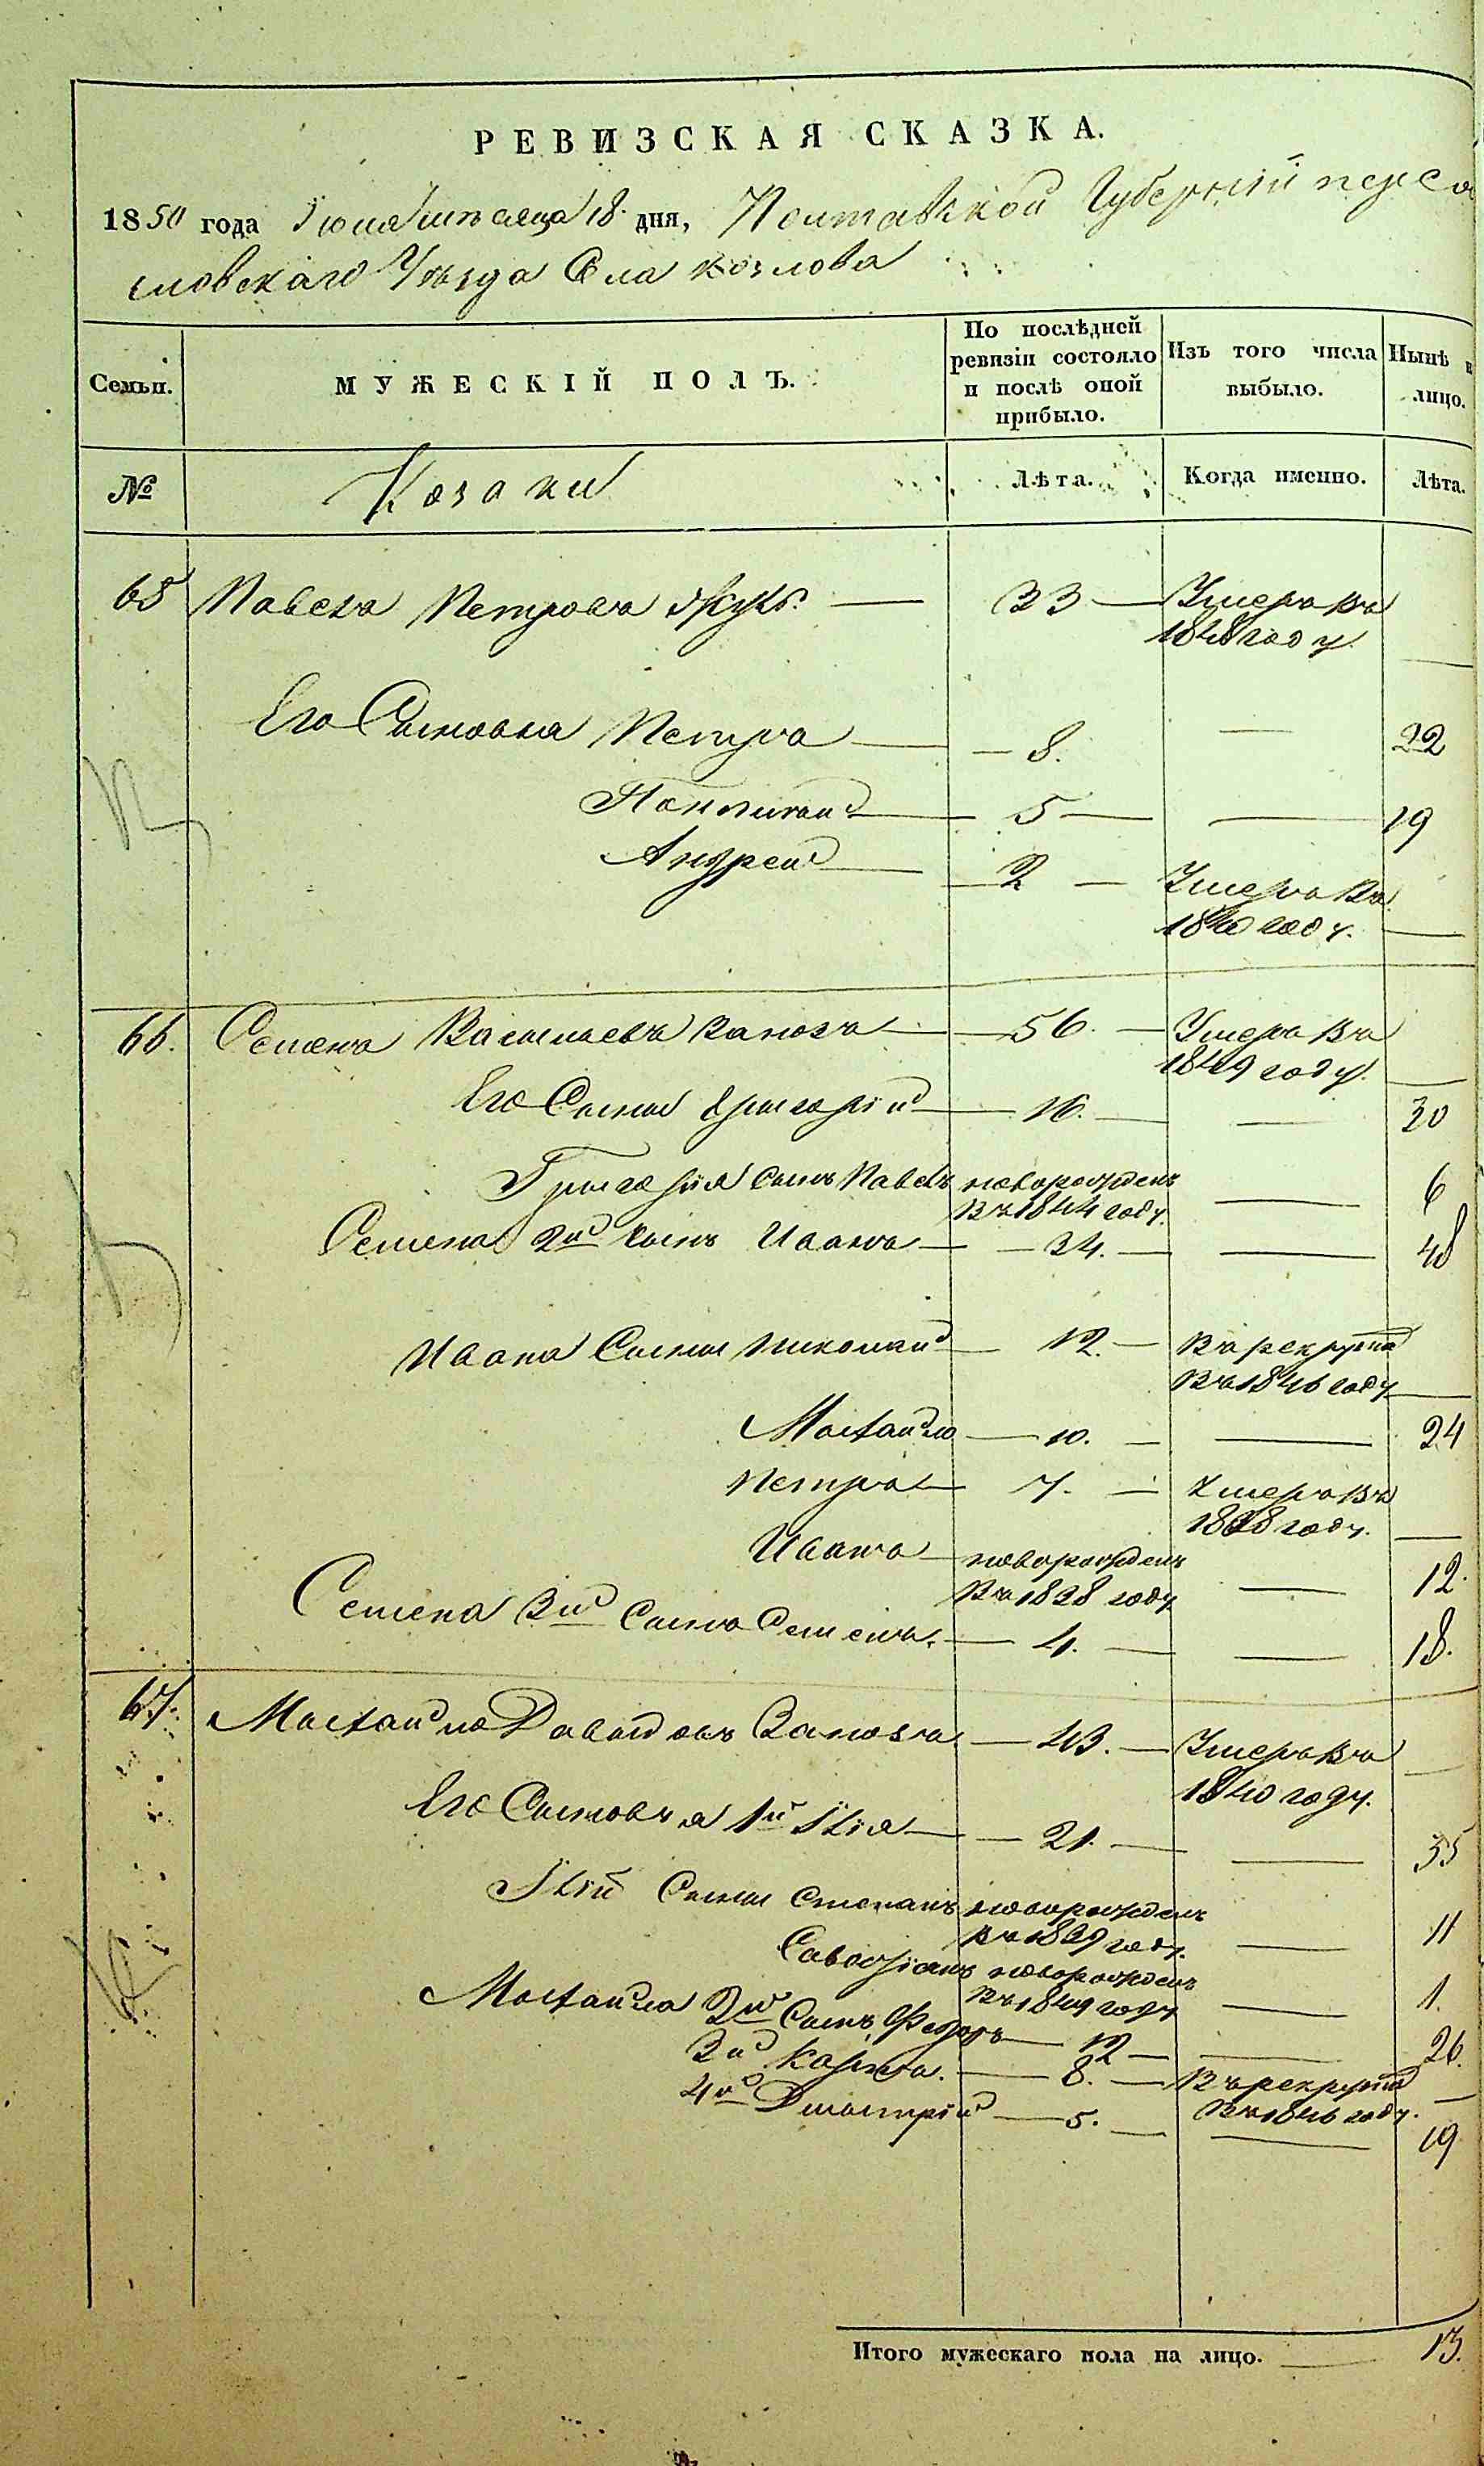 РЕВИЗСКАЯ СКАЗКА.
1850 года Іюня мѣсяца 18 дня, Полтавской Губерніи перея
словскаго Уѣзда Села козлова
Семьи. МУЖЕСКІЙ ПОЛЪ. По послѣдней ревизіи состояло и послѣ оной прибыло. Изъ того числа выбыло. Нынѣ на лицо.
№ Козаки Лѣта. Когда именно. Лѣта.
65 Павелъ Петровъ Жукъ. — 33 — Умеръ въ
1848 году. —
Его Сыновья Петръ — 8. — 22
Пантилей — 5 — 19
Андрей — 2 — Умеръ въ
1840 году. —
66. Семенъ Васильевъ — 56. — Умеръ въ
1849 году. —
Его Сыны Григорій — 16. — 30
Григорія сынъ Павелъ новорожденъ — 6
въ 1844 году.
Семена 2й сынъ Иванъ — 34. — 48
Ивана Сыны Николай — 12. — въ рекруты
въ 1846 году —
Михайло — 10. — 24
Петръ — 7. — Умеръ въ
1838 году. —
Иванъ новорожденъ — 12.
въ 1838 году
Семена 3й Сынъ Семенъ. — 4. — 18.
67. Михайло Давыдовъ — 43. — Умеръ въ
1840 году. —
Его Сыновья 1й Илія — 21. — 35
Иліи Сыны Степанъ новорожденъ — 11
въ 1839 году.
новорожденъ — 1.
въ 1849 году
Михайла 2й Сынъ Федоръ — 12 — 26.
3й — 8. — Въ рекруты
въ 1846 году. —
4й Дмитрій — 5. — 19
Итого мужескаго пола на лицо. — 13.